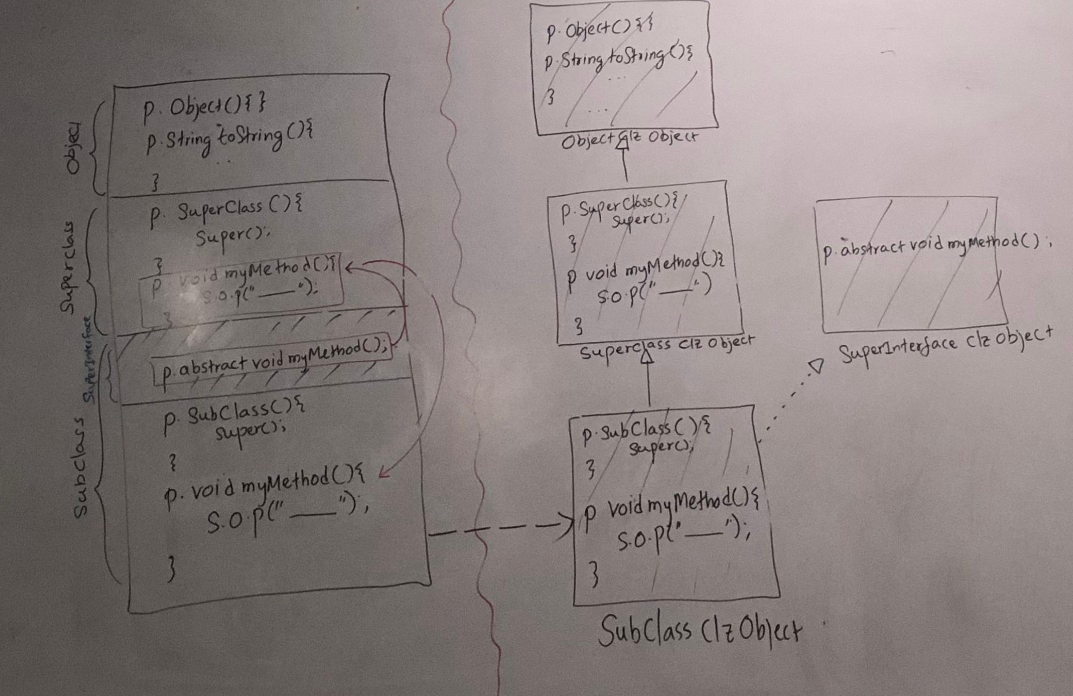 Object
p. Object(){ }
p. String toString(){
..
}
Superclass
p. SuperClass(){
Super();
}
p. void myMethod(){
S.O.P("——");
}
SuperInterface
p. abstract void myMethod();
Subclass
p. SubClass(){
Super();
}
p. void myMethod(){
S.O.P("——");
}
p. Object(){ }
p. String toString(){
...
}
...
Object Clz Object
p. SuperClass(){
Super();
}
p void myMethod(){
S.O.P("——")
}
Superclass Clz Object
p. abstract void myMethod();
SuperInterface Clz Object
p. SubClass(){
Super();
}
p void myMethod(){
S.O.P("——");
}
SubClass Clz Object